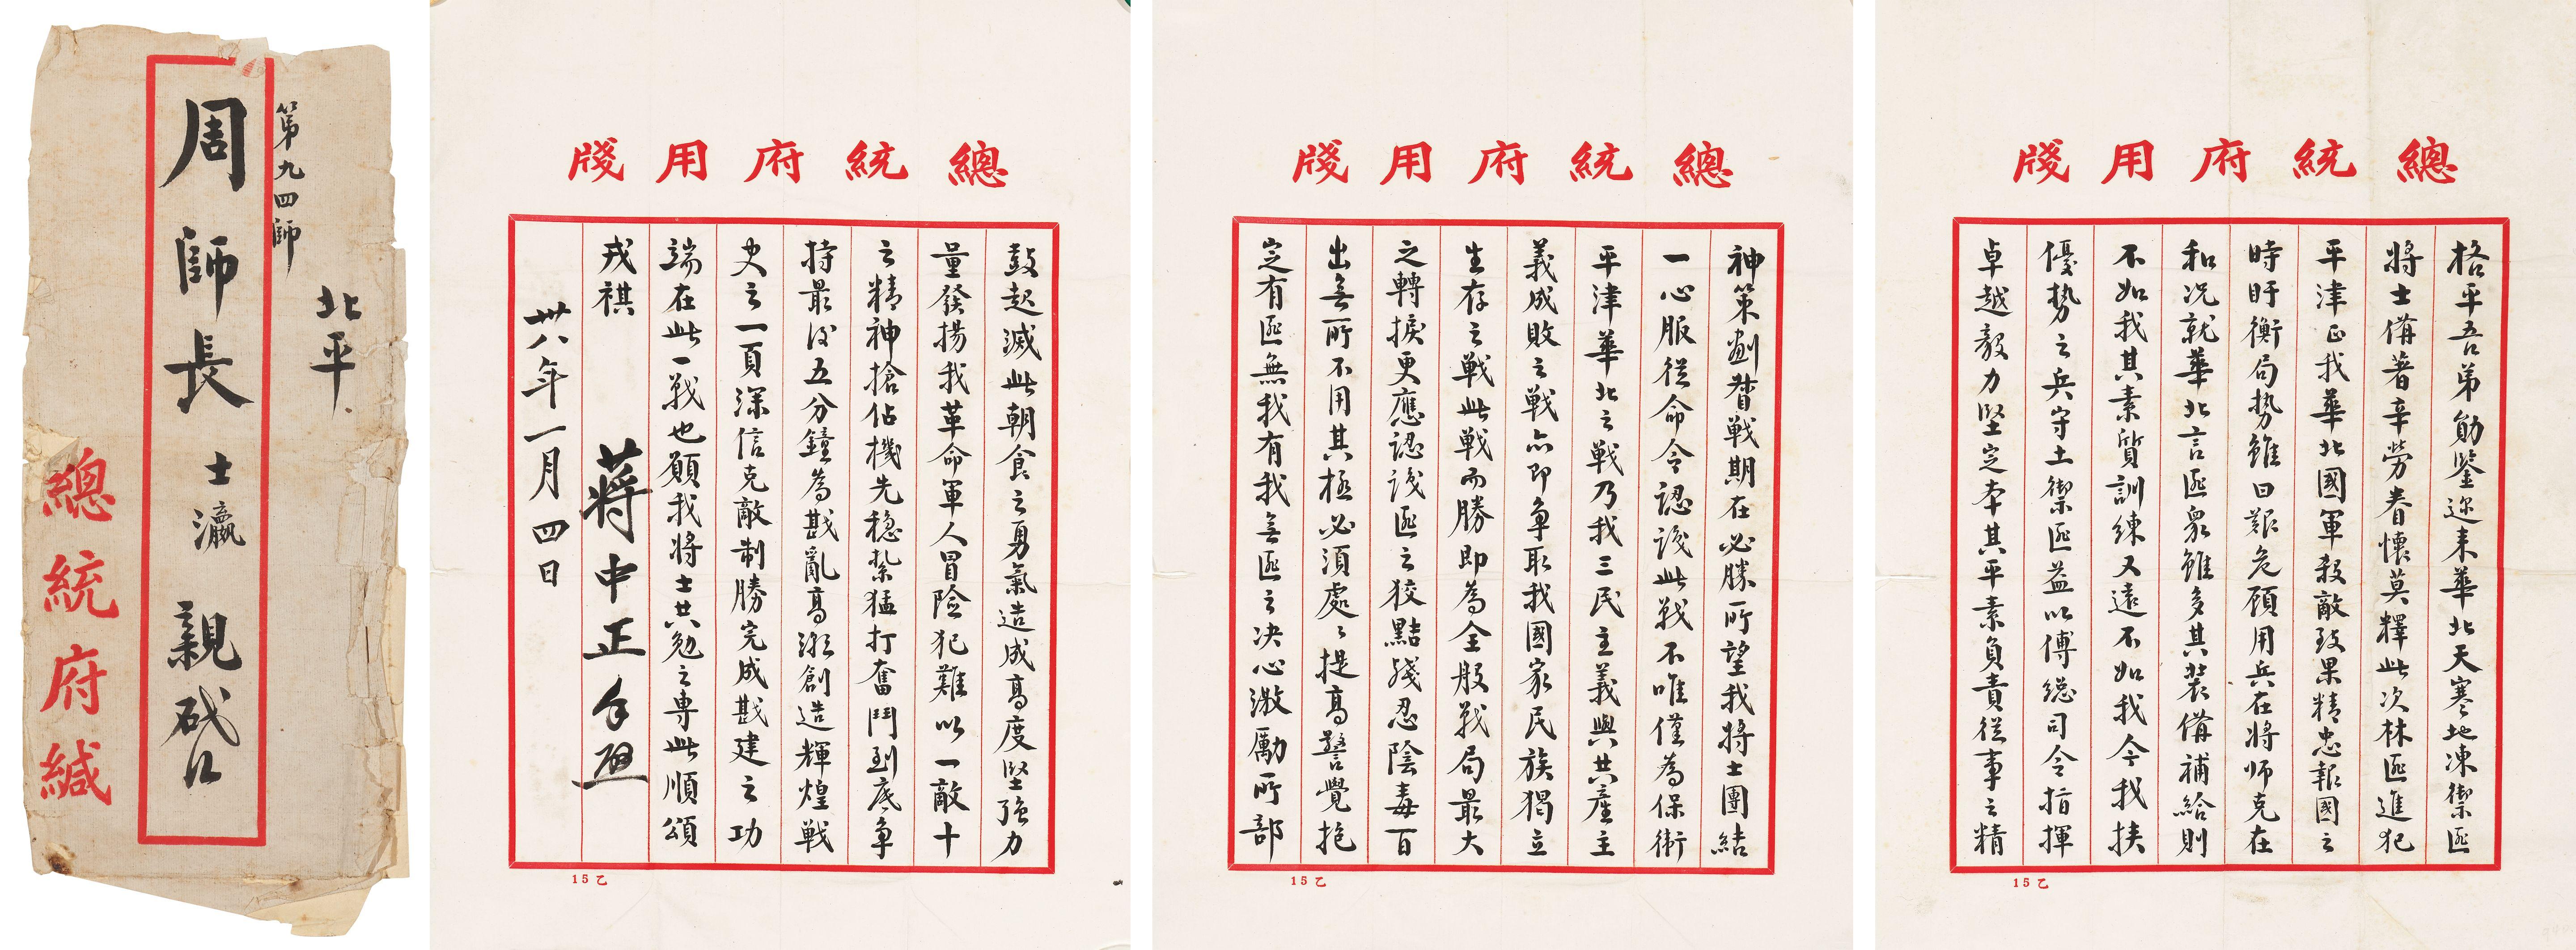 北平
第九四師
周師長士瀛親啟
總統府緘
總統府用牋
格平吾弟勛鑒迩来華北天寒地凍禦匪
将士備著辛勞眷懷莫釋此次林匪進犯
平津正我華北國軍殺敵致果精忠報國之
時盱衡局势雖曰艱危顧用兵在将師克在
和况就華北言匪衆雖多其装備補給則
不如我其素質訓練又遠不如我今我挟
優势之兵守土禦匪益以傅総司令指揮
卓越毅力堅定本其平素負責從事之精
15乙
總統府用牋
神策劃督戰期在必勝所望我将士團結
一心服從命令認識此戰不唯僅為保衛
平津華北之戰乃我三民主義與共產主
義成敗之戰亦即争取我國家民族獨立
生存之戰此戰而勝即為全般戰局最大
之轉捩更應認識匪之狡黠殘忍陰毒百
出無所不用其極必須處〻提高警覺抱
定有匪無我有我無匪之决心激勵所部
15乙
總統府用牋
鼓起滅此朝食之勇氣造成高度堅強力
量發揚我革命軍人冒險犯難以一敵十
之精神搶佔機先穩紮猛打奮鬥到底争
持最後五分鐘為戡亂高潮創造輝煌戰
史之一頁深信克敵制勝完成戡建之功
端在此一戰也願我将士共勉之専此順頌
戎祺
蔣中正手啟
卅八年一月四日
15乙